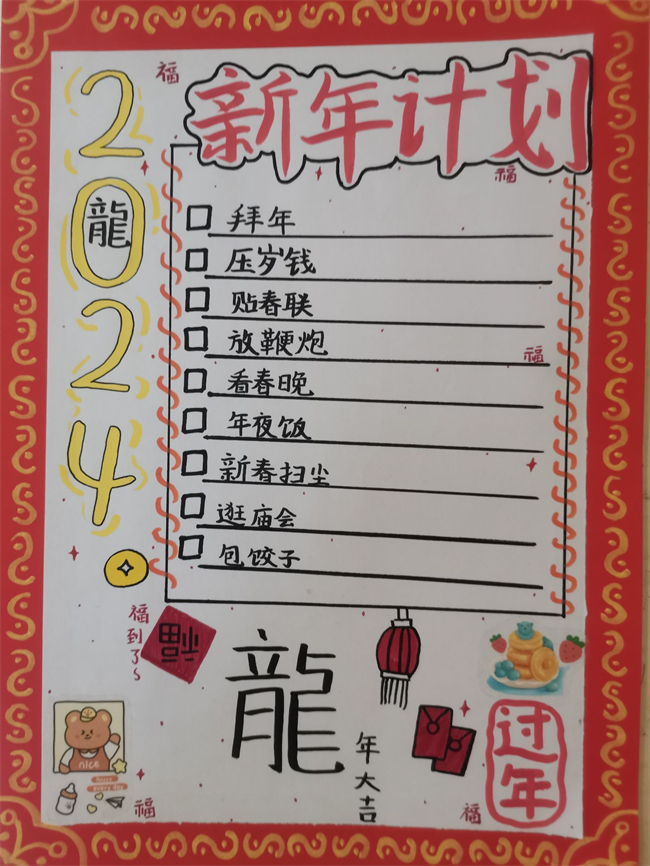 新年计划
2024
龍
福
福
拜年
压岁钱
贴春联
放鞭炮
福
看春晚
年夜饭
新春扫尘
逛庙会
包饺子
福到了~
福
龍
年大吉
过年
nice
福
福